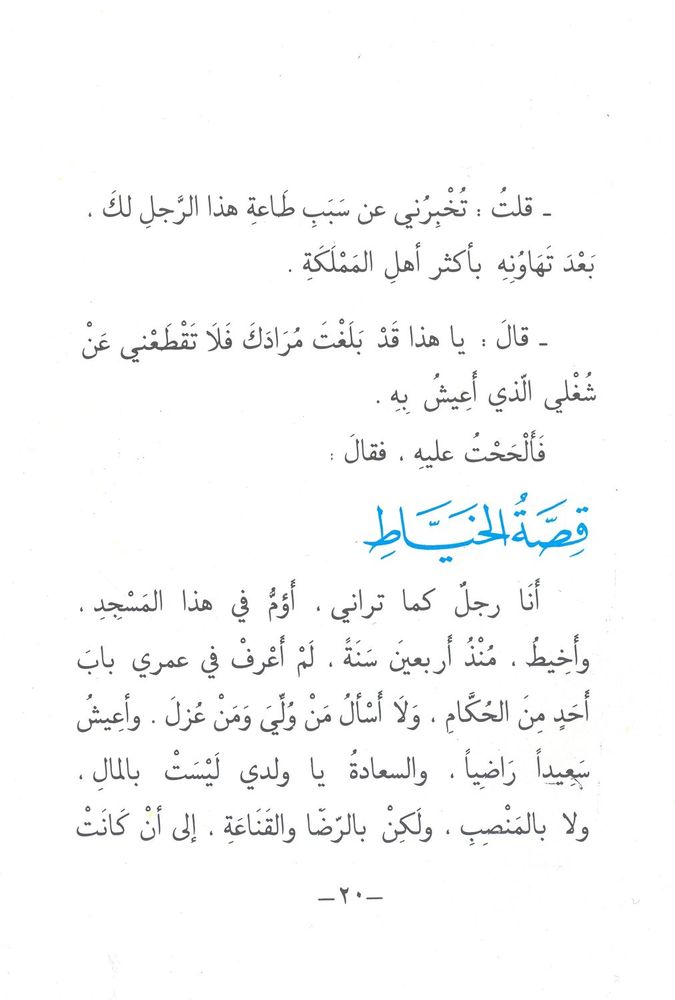 ـ قلتُ : تُخْبِرُني عن سَبَبِ طَاعةِ هذا الرَّجلِ لكَ ،
بَعْدَ تَهَاوُنِهِ بأكثر أهلِ المَمْلَكَةِ .
ـ قالَ : يا هذا قَدْ بَلَغْتَ مُرَادَكَ فَلَا تَقْطَعْني عَنْ
شُغْلي الّذي أَعِيشُ بِهِ .
فَأَلْحَحْتُ عليهِ ، فقالَ :
قِصَّةُ الخَيَّاطِ
أَنَا رجلٌ كما تراني ، أَؤمُّ في هذا المَسْجِدِ ،
وأَخِيطُ ، مُنْذُ أربعينَ سَنَةً ، لَمْ أَعْرفْ في عمري بابَ
أَحَدٍ مِنَ الحُكَّامِ ، وَلَا أَسْألُ مَنْ وُلِّيَ وَمَنْ عُزلَ . وأعِيشُ
سَعِيداً رَاضِياً ، والسعادةُ يا ولدي لَيْسَتْ بالمالِ ،
ولا بالمَنْصِبِ ، ولَكِنْ بالرّضَا والقَنَاعَةِ ، إلى أنْ كَانَتْ
–٢٠–